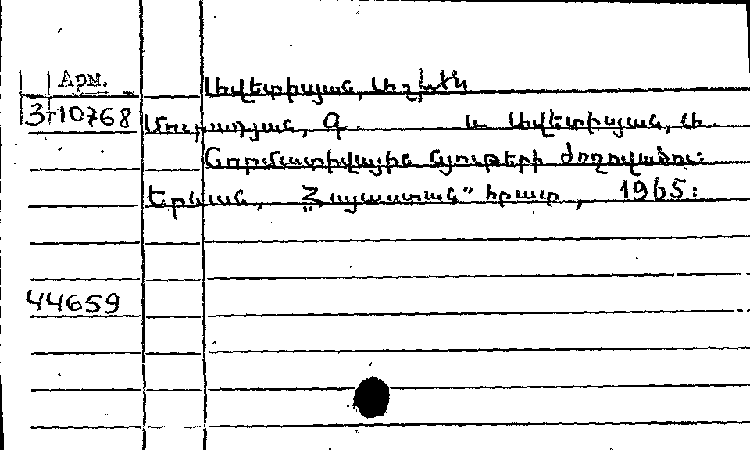 Арм.
Ավետիսյան, Աշխեն
3-10768
Մուրադյան, Գ. և Ավետիսյան, Ա.
Նորմատիվային նյութերի ժողովածու։
Երևան, „Հայաստան" հրատ, 1965։
44659